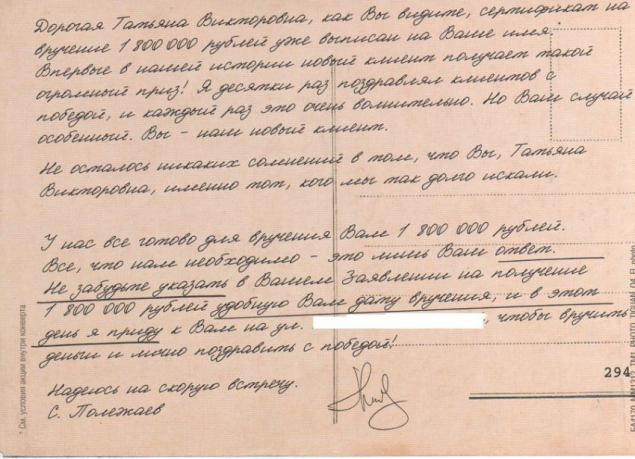 Дорогая Татьяна Викторовна, как Вы видите, сертификат на
вручение 1 800 000 рублей уже выписан на Ваше имя.
Впервые в нашей истории новый клиент получает такой
огромный приз! Я десятки раз поздравлял клиентов с
победой, и каждый раз это очень волнительно. Но Ваш случай
особенный. Вы - наш новый клиент.
Не осталось никаких сомнений в том, что Вы, Татьяна
Викторовна, именно тот, кого мы так долго искали.
У нас все готово для вручения Вам 1 800 000 рублей.
Все, что нам необходимо - это лишь Ваш ответ.
Не забудьте указать в Вашем Заявлении на получение
1 800 000 рублей удобную Вам дату вручения, и в этот
день я приду к Вам на ул. , чтобы вручить
деньги и лично поздравить с победой!
Надеюсь на скорую встречу.
С. Полежаев
294
* См. условия акции внутри конверта